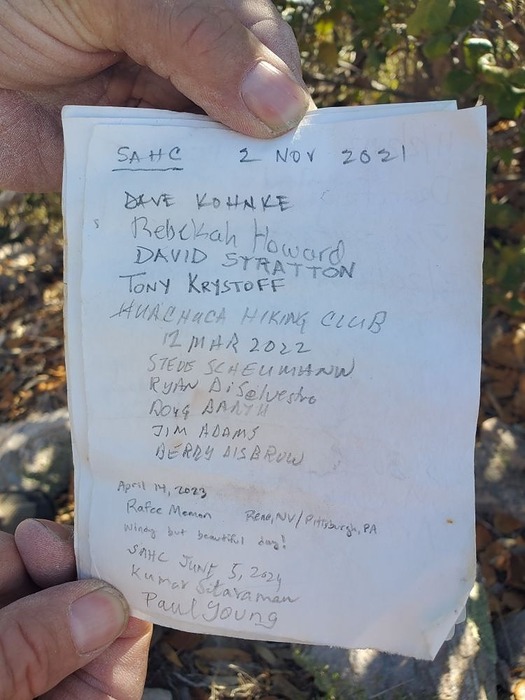 SAHC 2 NOV 2021
DAVE KOHNKE
Rebekah Howard
DAVID STRATTON
TONY KRYSTOFF
HUACHUCA HIKING CLUB
12 MAR 2022
STEVE SCHEUMANN
RYAN DiSelvestro
DOUG BARTH
JIM ADAMS
BERRY DISBROW
April 14, 2023
Rafee Memon Reno, NV/Pittsburgh, PA
Windy but beautiful day!
SAHC JUNE 5, 2024
Kumar Sitaraman
Paul Young